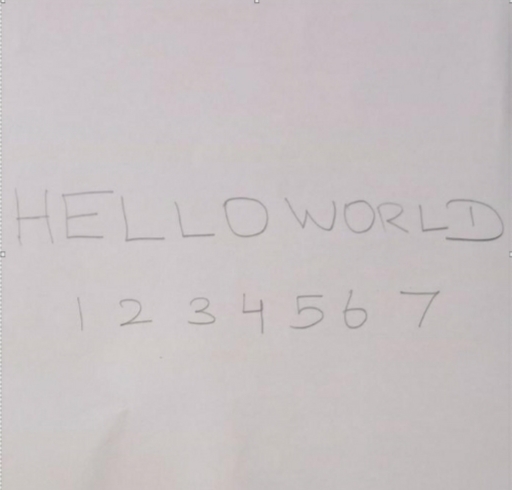 HELLO WORLD
1 2 3 4 5 6 7